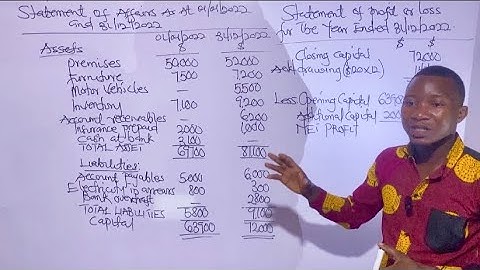 Statement of Affairs As at 01/01/2022
and 31/12/2022
01/01/2022 31/12/2022
$ $
Assets
Premises 50000 52000
Furniture 7500 7200
Motor Vehicles — 5500
Inventory 7,100 9200
Account receivables — 6200
Insurance prepaid 2000 1000
Cash at bank 3100 —
TOTAL ASSET 69700 81100
Liabilities:
Account payables 5000 6000
Electricity in arrears 800 300
Bank overdraft — 2800
TOTAL LIABILITIES 5800 9100
Capital 63900 72000
Statement of Profit or Loss
for the Year Ended 31/12/2022
$ $
Closing Capital 72000
Add drawing ($20x12)
Less Opening Capital 63900
Additional Capital 2000
NET PROFIT